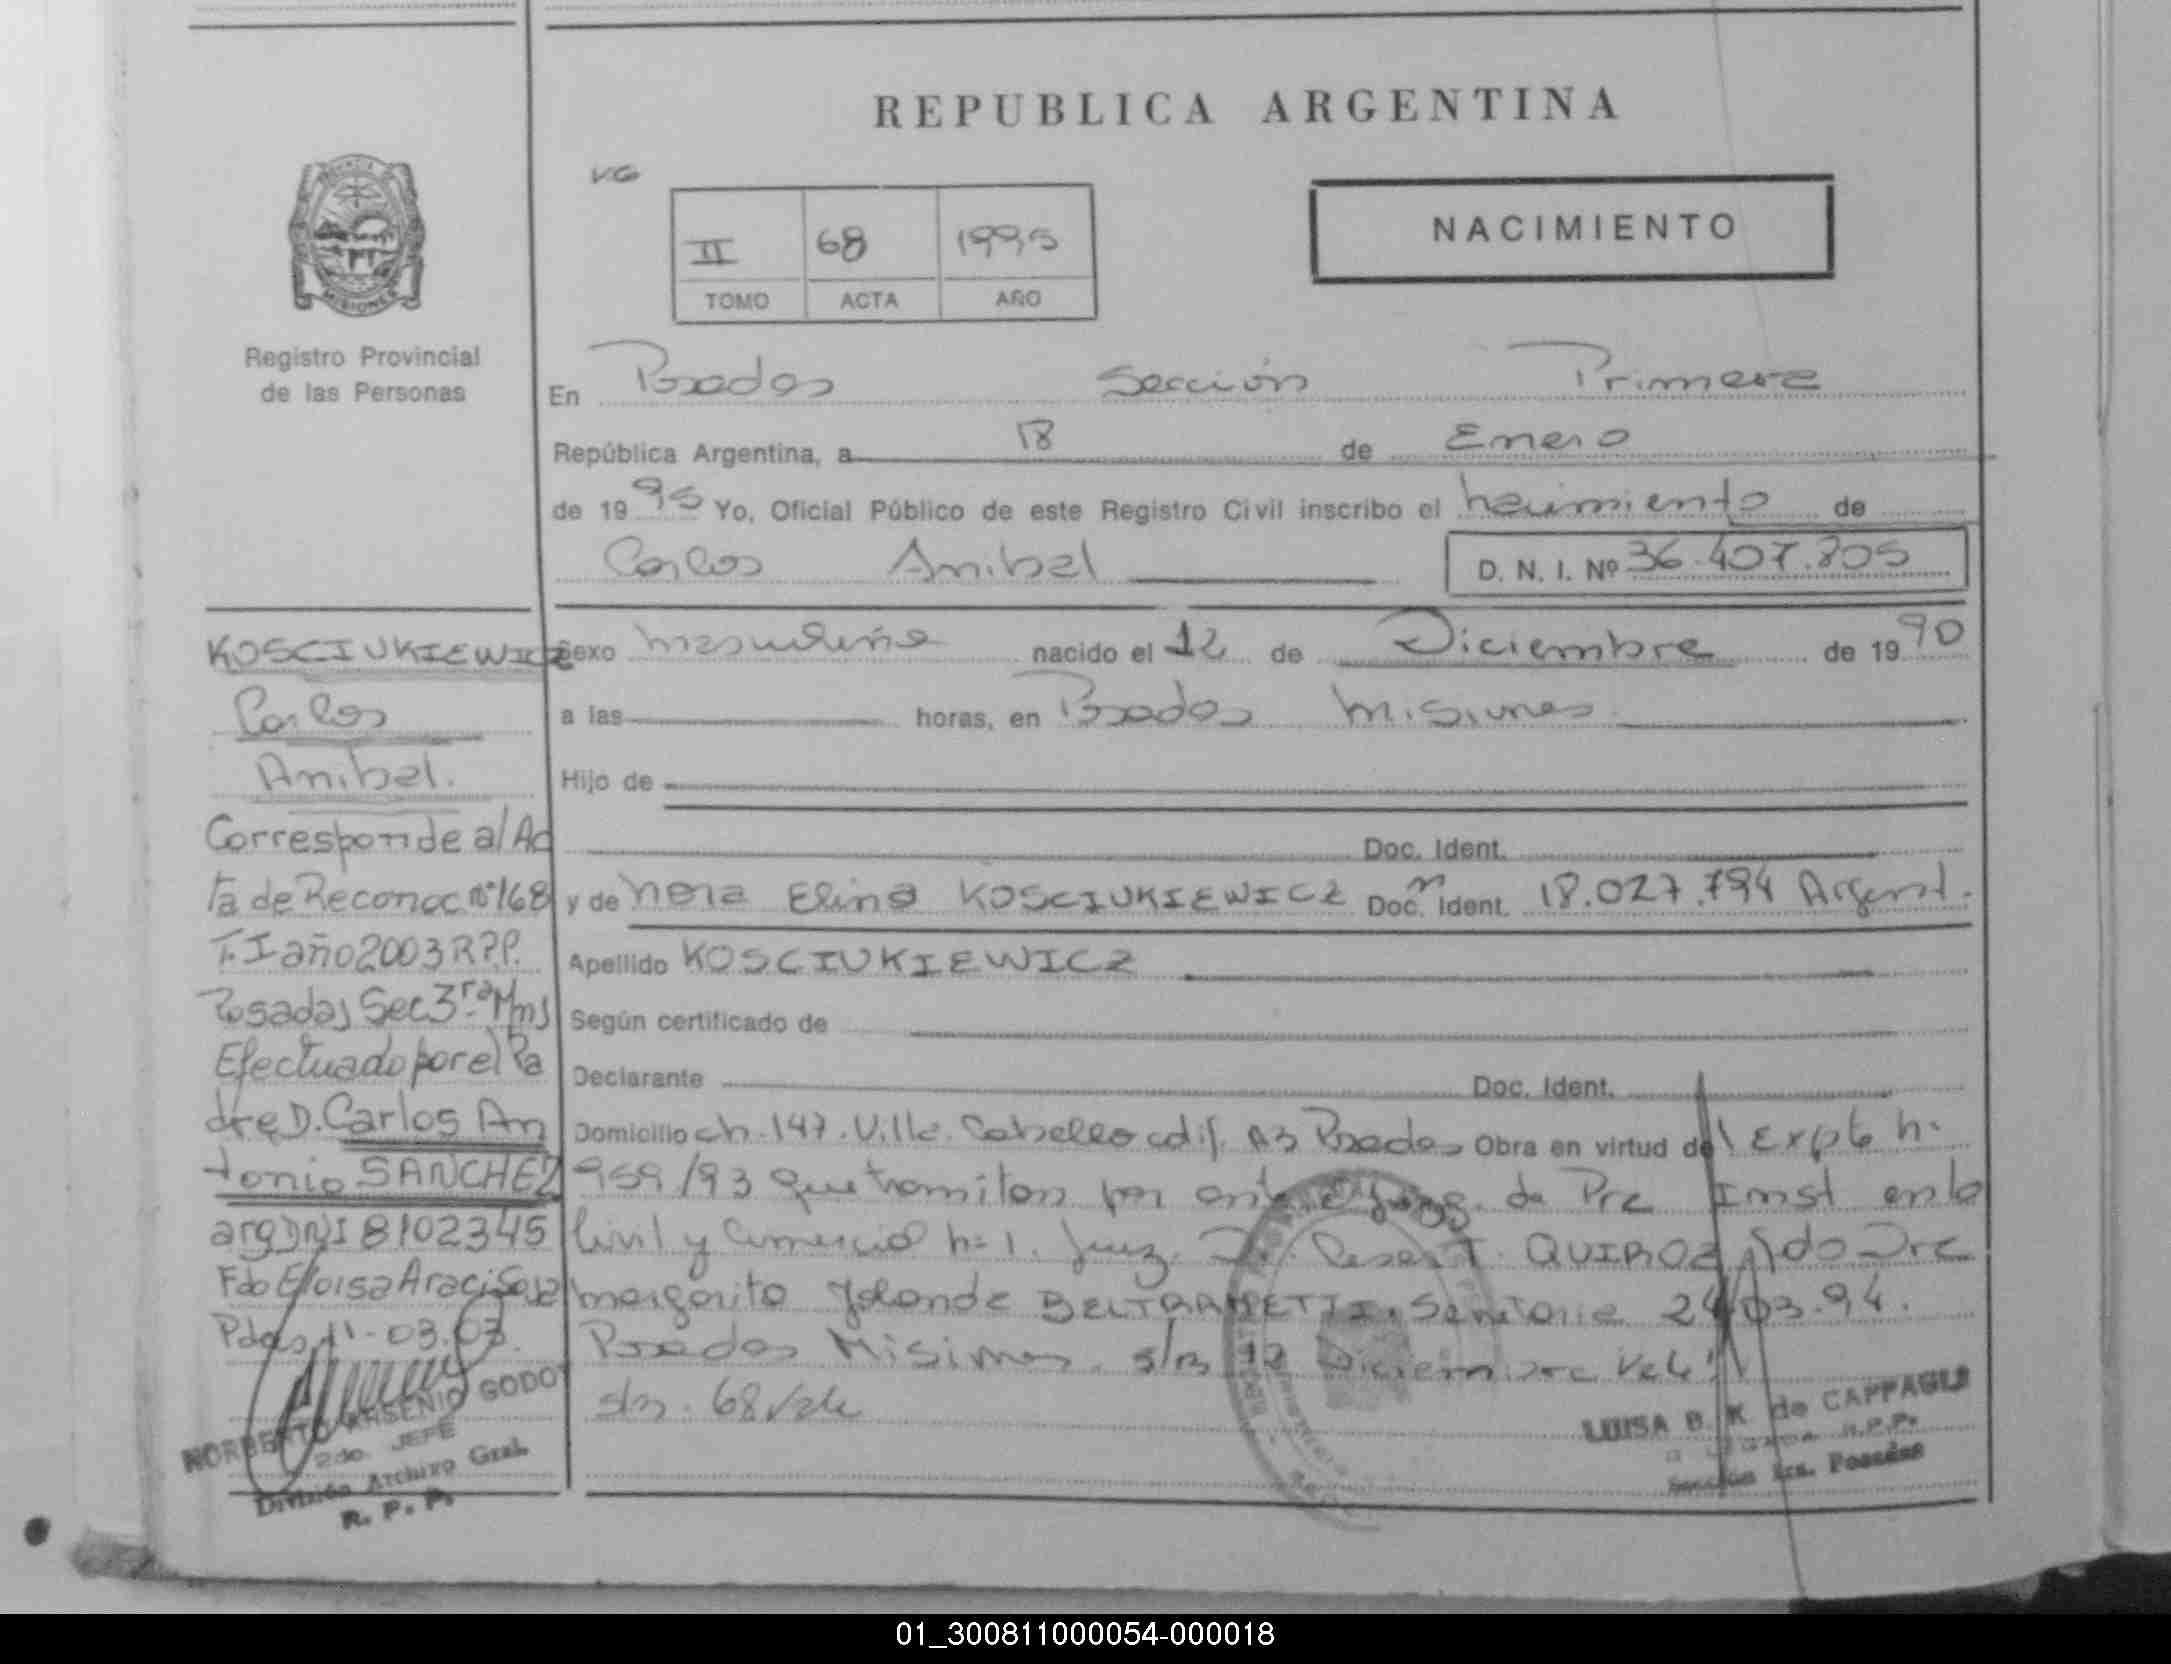 REPUBLICA ARGENTINA
VG
II 68 1995
TOMO ACTA AÑO
NACIMIENTO
PROVINCIA DE MISIONES
Registro Provincial
de las Personas
En Posadas Sección Primera
República Argentina, a 18 de Enero
de 1995 Yo, Oficial Público de este Registro Civil inscribo el nacimiento de
Carlos Anibal D. N. I. Nº 36.407.805
Sexo masculino nacido el 12 de Diciembre de 1990
a las horas, en Posadas Misiones
Hijo de
Doc. Ident.
y de Nora Elina KOSCIUKIEWICZ Doc. Ident. 18.027.794 Argent.
Apellido KOSCIUKIEWICZ
Según certificado de
Declarante Doc. Ident.
Domicilio ch. 147. Villa Cabello edif. A3 Posadas Obra en virtud del Expte n-
959/93 que tramitan por ante Juzg. de Pra Inst en lo
Civil y Comercial n= 1. Juez. Cesar T. QUIROZ fdo Dra
margarita Yolanda BELTRAMETTI, Secretaria 24.03.94.
Posadas Misiones. s/n 12 Diciembre Vale
s/n. 68 Vale
LUISA B. K. de CAPPAGLI
R.P.P.
Sección 1ra. Posadas
KOSCIUKIEWICZ
Carlos
Anibal.
Corresponde al Ac
ta de Reconoc nº 168
T. I año 2003 R.P.P.
Posadas Sec 3ra Mns
Efectuado por el Pa
dre D. Carlos An
tonio SANCHEZ
arg DNI 8102345
Fdo Eloisa Araci Sosa
Pdas 11-03.03.
NORBERTO ARSENIO GODOY
2do. JEFE
División Archivo Gral.
R. P. P.
01_300811000054-000018